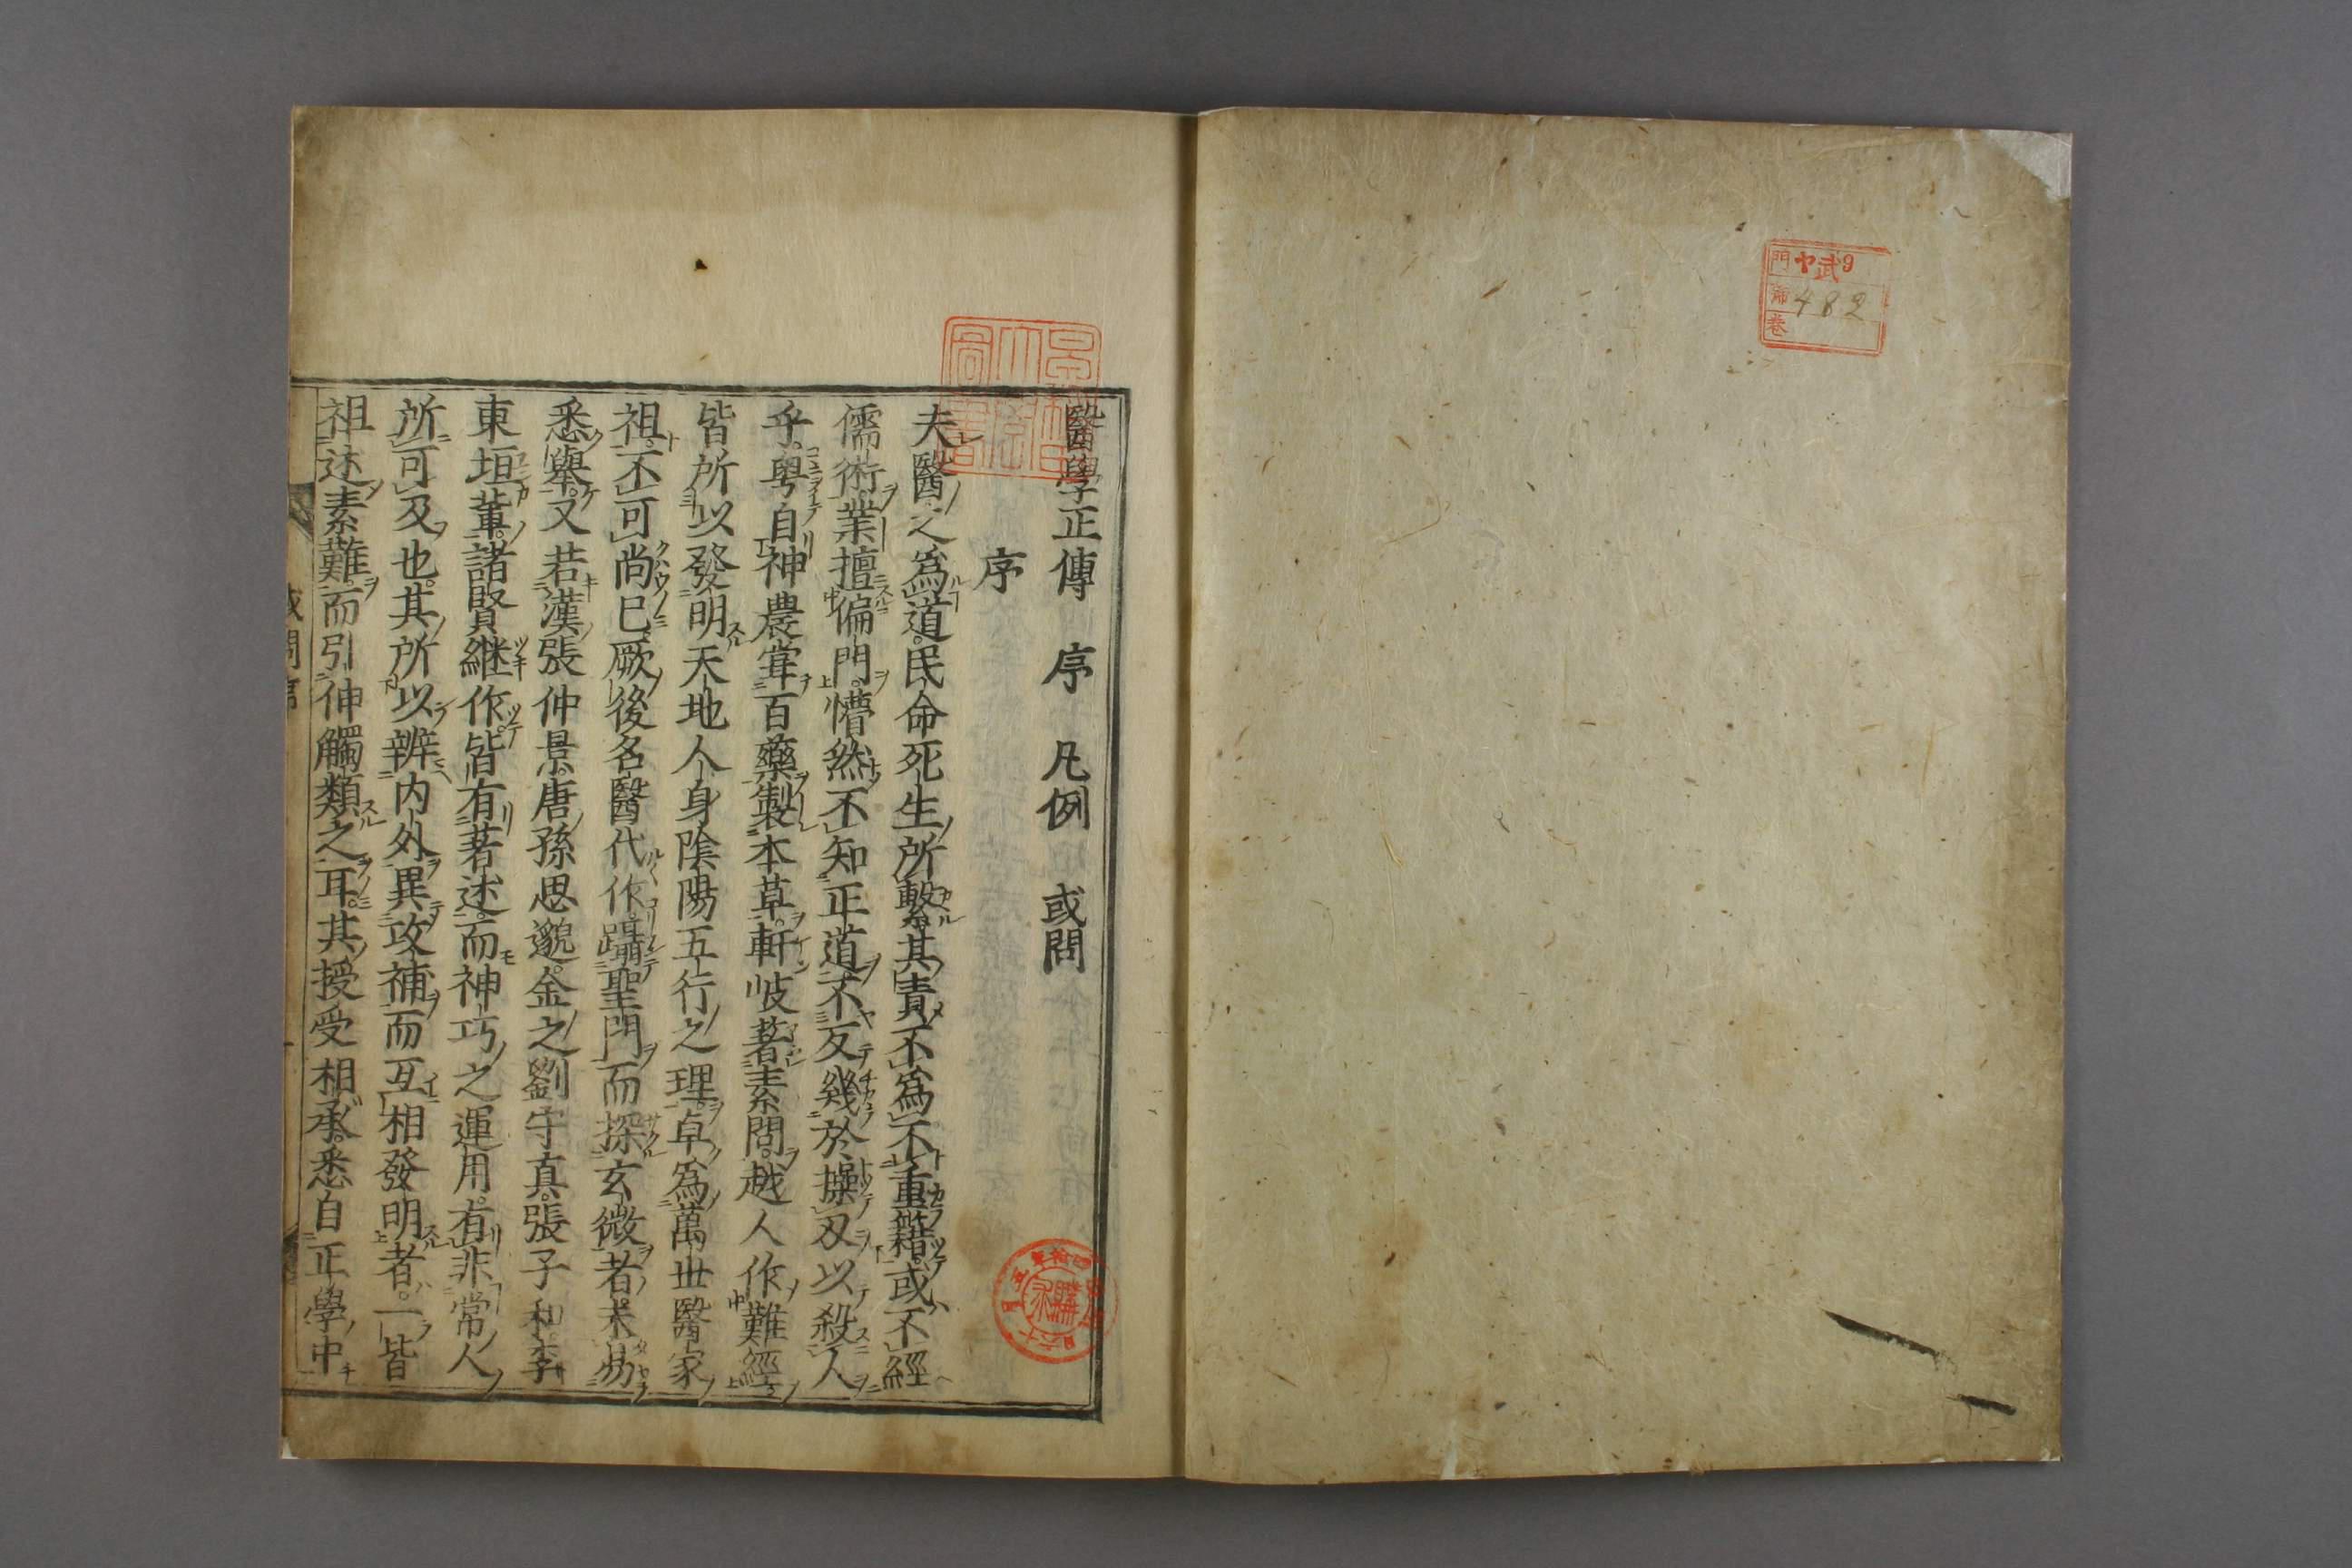 門 ヤ武9
部 482
巻
醫學正傳 序 凡例 或問
序
夫醫之爲道民命死生所繫其責不爲不重籍或不經
儒術業擅偏門懵然不知正道不反幾於操刃以殺人
乎粤自神農甞百藥製本草軒岐著素問越人作難經
皆所以發明天地人身陰陽五行之理卓爲萬世醫家
祖不可尚已厥後名醫代作躡聖門而探玄微者未易
悉舉又若漢張仲景唐孫思邈金之劉守真張子和李
東垣軰諸賢継作皆有著述而神巧之運用有非常人
所可及也其所以辨内外異攻補而互相發明者一皆
祖述素難而引伸觸類之耳其授受相承悉自正學中